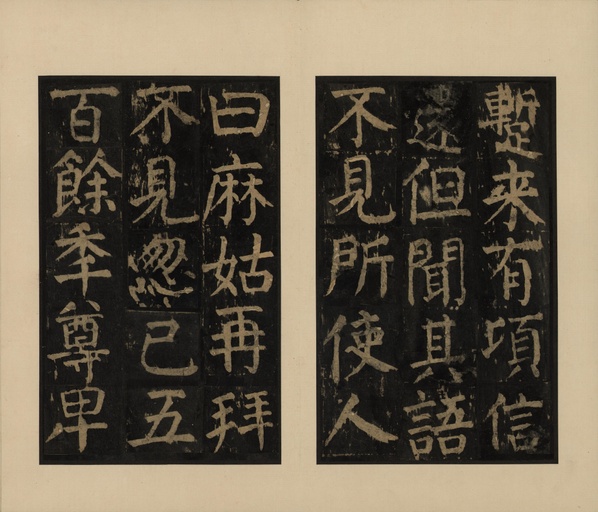 蹔来有項信
還但聞其語
不見所使人
曰麻姑再拜
不見忽已五
百餘年尊卑